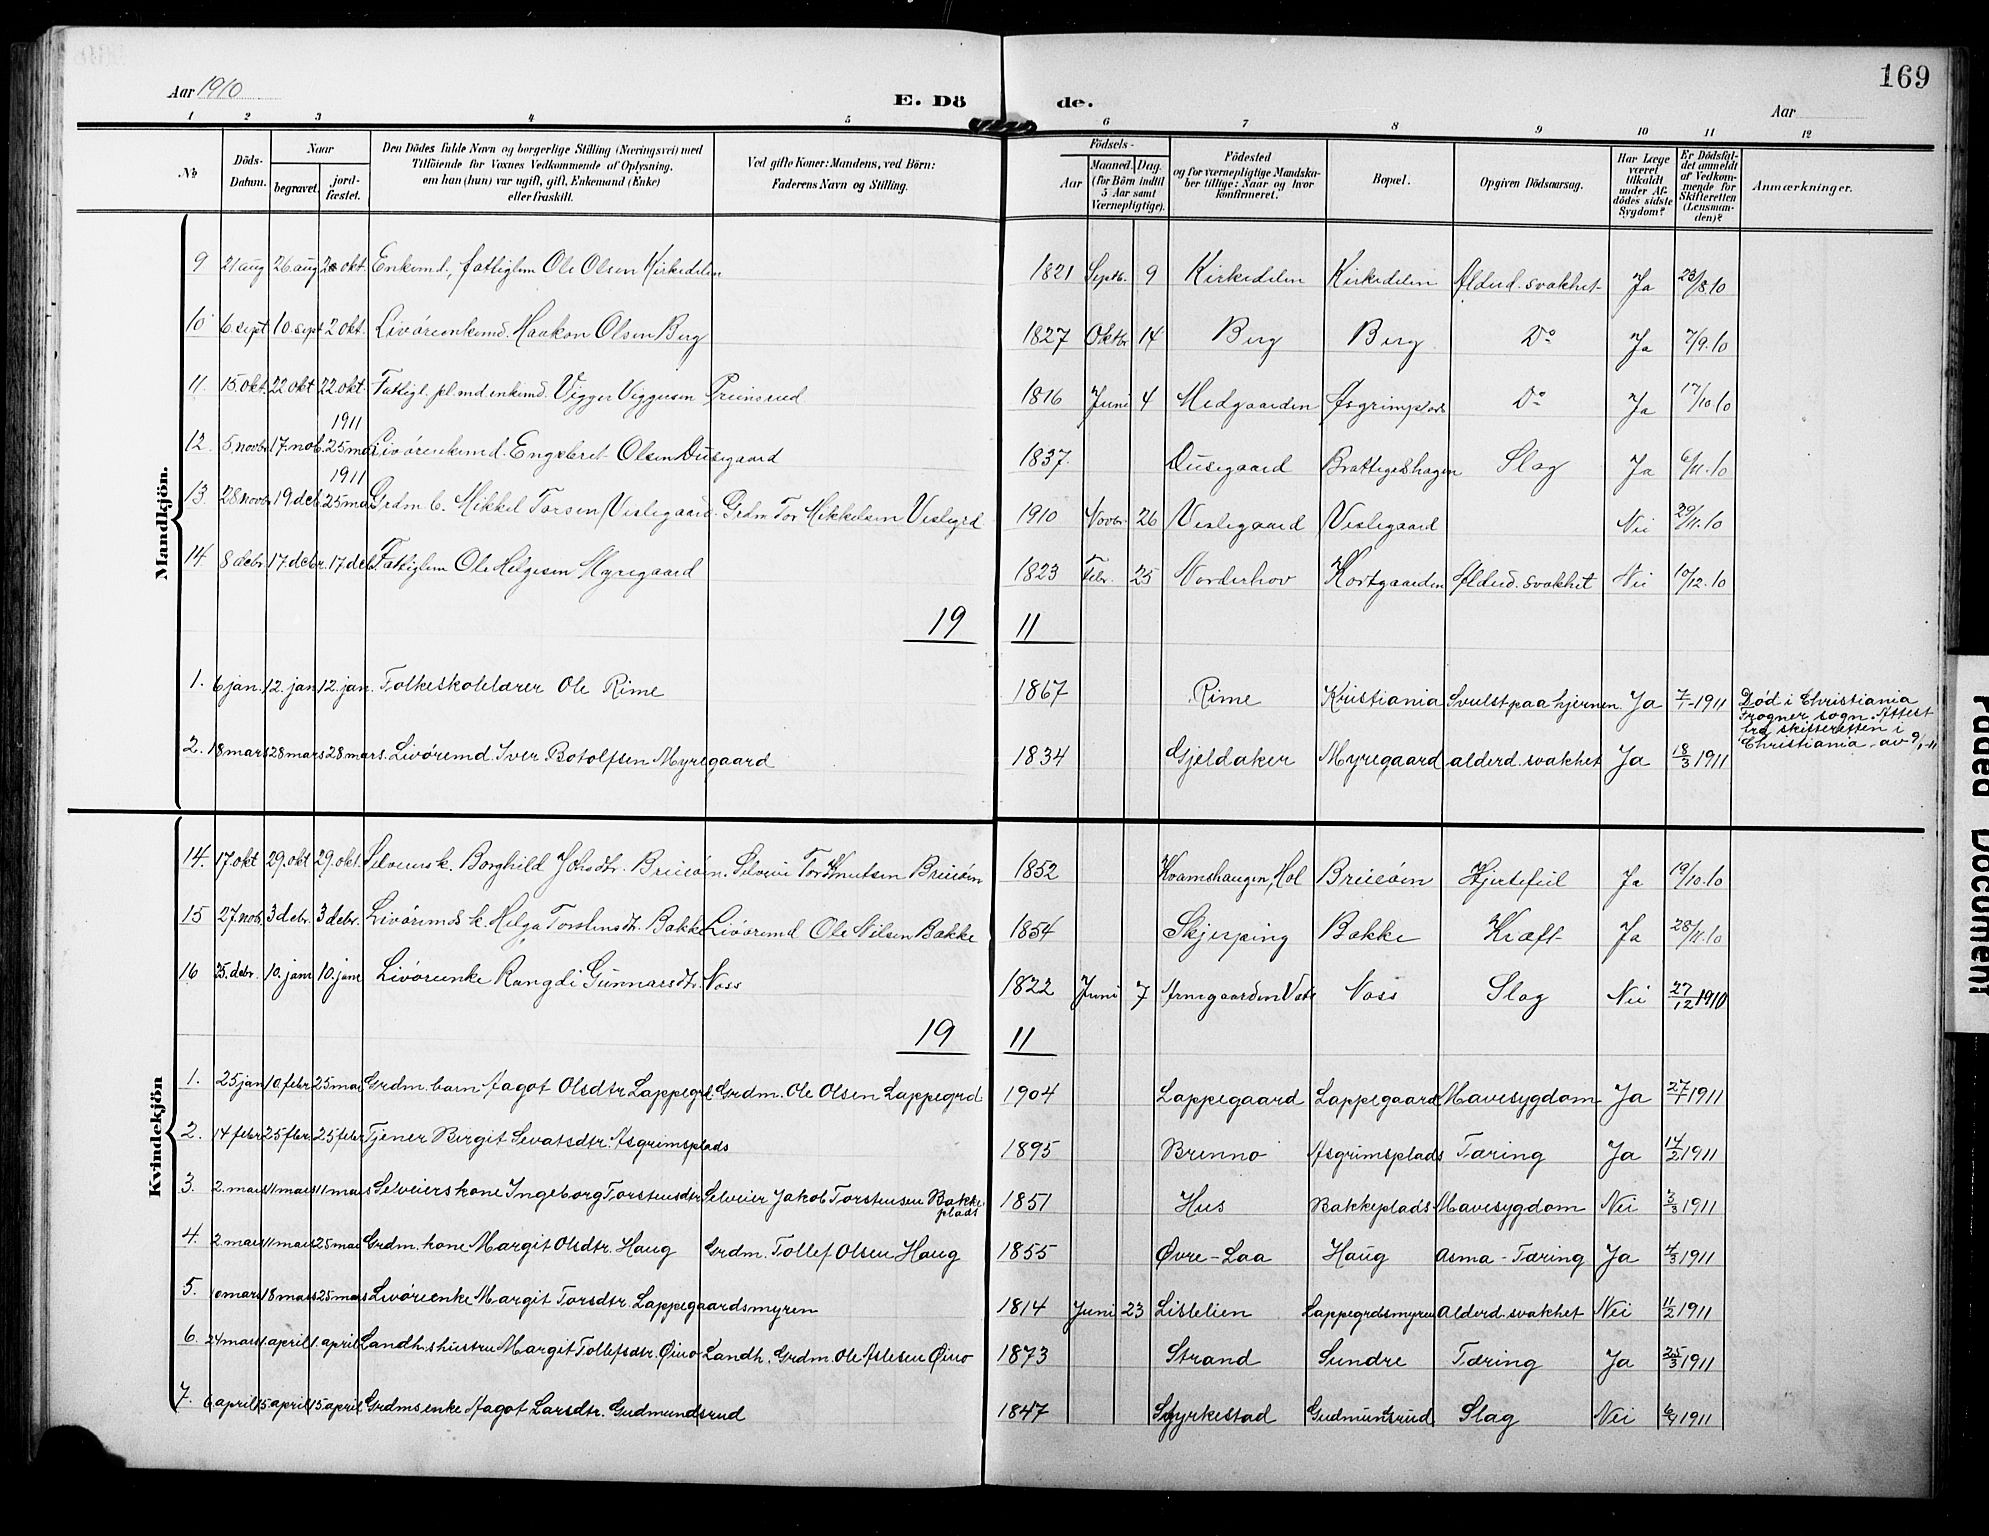 169
Aar 1910
E. Dö de.
Aar
1 2 3 4 5 6 7 8 9 10 11 12
No
Döds-Datum.
Naar
begravet.
jord-fæstet.
Den Dödes fulde Navn og borgerlige Stilling (Næringsvei) med
Tilföiende for Voxnes Vedkommende af Oplysning,
om han (hun) var ugift, gift, Enkemand (Enke)
eller fraskilt.
Ved gifte Koner: Mandens, ved Börn:
Faderens Navn og Stilling.
Födsels-
Aar
Maaned. Dag.
(for Börn indtil
5 Aar samt
Værnepligtige).
Födested
og for værnepligtige Mandska-
ber tillige: Naar og hvor
konfirmeret.
Bopæl.
Opgiven Dödsaarsag.
Har Læge
været
tilkaldt
under Af-
dödes sidste
Sygdom?
Er Dödsfal-
det anmeldt
af Vedkom-
mende for
Skifteretten
(Lensman-
den)?
Anmærkninger.
Mandkjön.
9 21 aug 26 aug 2 okt. Enkemd., fattiglem Ole Olsen Kirkedelen 1821 Septb. 9 Kirkedelen Kirkedelen Alderd. svakhet Ja 23/8.10
10 6 sept. 10. sept 2 okt. Livöreenkemd. Haakon Olsen Berg 1827 Oktbr 14 Berg Berg Do Ja 7/9.10
11. 15. okt. 22 okt 22 okt. Fattigl. pl. md enkemd. Vigger Viggersen Prensrud 1816 Juni 4 Medgaarden Asgrimplads Do Ja 17/10 10
1911
12. 5 novbr. 17. nob. 25 mai Livörenkemd. Engebret Olsen Dusegaard 1837. Dusegaard Brattegeshagen Slag Ja 6/11.10
1911
13. 28 novbr. 19 deb. 25 mai Grdm b. Mikkel Torsen Veslegaard Grdm Tor MikkelsenVeslegrd 1910 Novbr. 26 Veslegaard Veslegaard Nei 29/11.10
14 8 debr. 17. debr. 17. deb. Fattiglem Ole Helgesen Myregaard 1823 Febr. 25 Norderhov Kortgaarden Alderd. svakhet Nei 10/12.10
19 11
1. 6 jan. 12. jan 12. jan. Folkeskolelærer Ole Rime 1867 Rime Kristiania Svulst paa hjernen Ja 7/1-1911 Död i Christiania
Frogner sogn. Attest
fra skifteretten i
Christiania av 9/1-11
2. 18 mars 28 mars 28 mars. Livöremd. Iver Botolfsen Myregaard 1834 Gjeldaker Myregaard alderd. svakhet Ja 18/3 1911
Kvindekjön
14. 17. okt 29. okt 29. okt. Selveiersk. Borghild Johsdtr. Breieöin. Selveier Tor Knutsen Breieöin 1852 Kvamshaugen, Hol Breieöin Hjertefeil Ja 19/10.10
15 27. nob. 3 debr. 3 debr. Livöremds k. Helga Torstensdtr. Bakke Livöremd Ole Nilsen Bakke 1854 Skjerping Bakke Kræft Ja 28/11.10
16 25. debr. 10. jan 10. jan Livörenke Rangdi Gunnarsdtr. Noss 1822 Juni 7 Arnegaarden Vats Noss Slag Nei 27/12 1910
19 11
1. 25 jan 10 febr 25 mai Grdm. barn Aagot Olsdtr Lappegrd. Grdm. Ole Olsen Lappegrd 1904 Lappegaard Lappegaard Mavesygdom Ja 27/1 1911
2. 14 febr 25 febr 25 febr Tjener Birgit Sevatsdtr. Asgrimsplads 1895 Brenno Asgrimsplads Tæring Ja 14/2 1911
3. 2. mars 11 mars 11 mars Selveiers kone Ingeborg Torstensdtr Selveier Jakob Torstensen Bakke plads 1851 Hus Bakkeplads Mavesygdom Nei 3/3 1911
4. 2 mars 11 mars 25 mai Grdm. kone Margit Olsdtr. Haug Grdm. Tollef Olsen Haug 1855 Øvre-Laa Haug Asma-Tæring Ja 4/3 1911
5. 10 mars 18 mars 25 mars Livöreenke Margit Torsdtr. Lappegaardsmyren 1814 Juni 23 Listelien Lappegrdsmyren Alderd. svakhet Nei 11/2 1911
6. 24 mars 1. april 1. april Landh.s hustru Margit Tollefsdtr. Øino Landh. Grdm. Ole Aslesen Øino 1873 Strand Sundre Tæring Ja 25/3 1911
7. 6 april 15 april 15 april Grdms enke Aagot Larsdtr. Gudmundsrud 1847 Styrkestad Gudmunsrud Slag Nei 6/4 1911
Padea Document